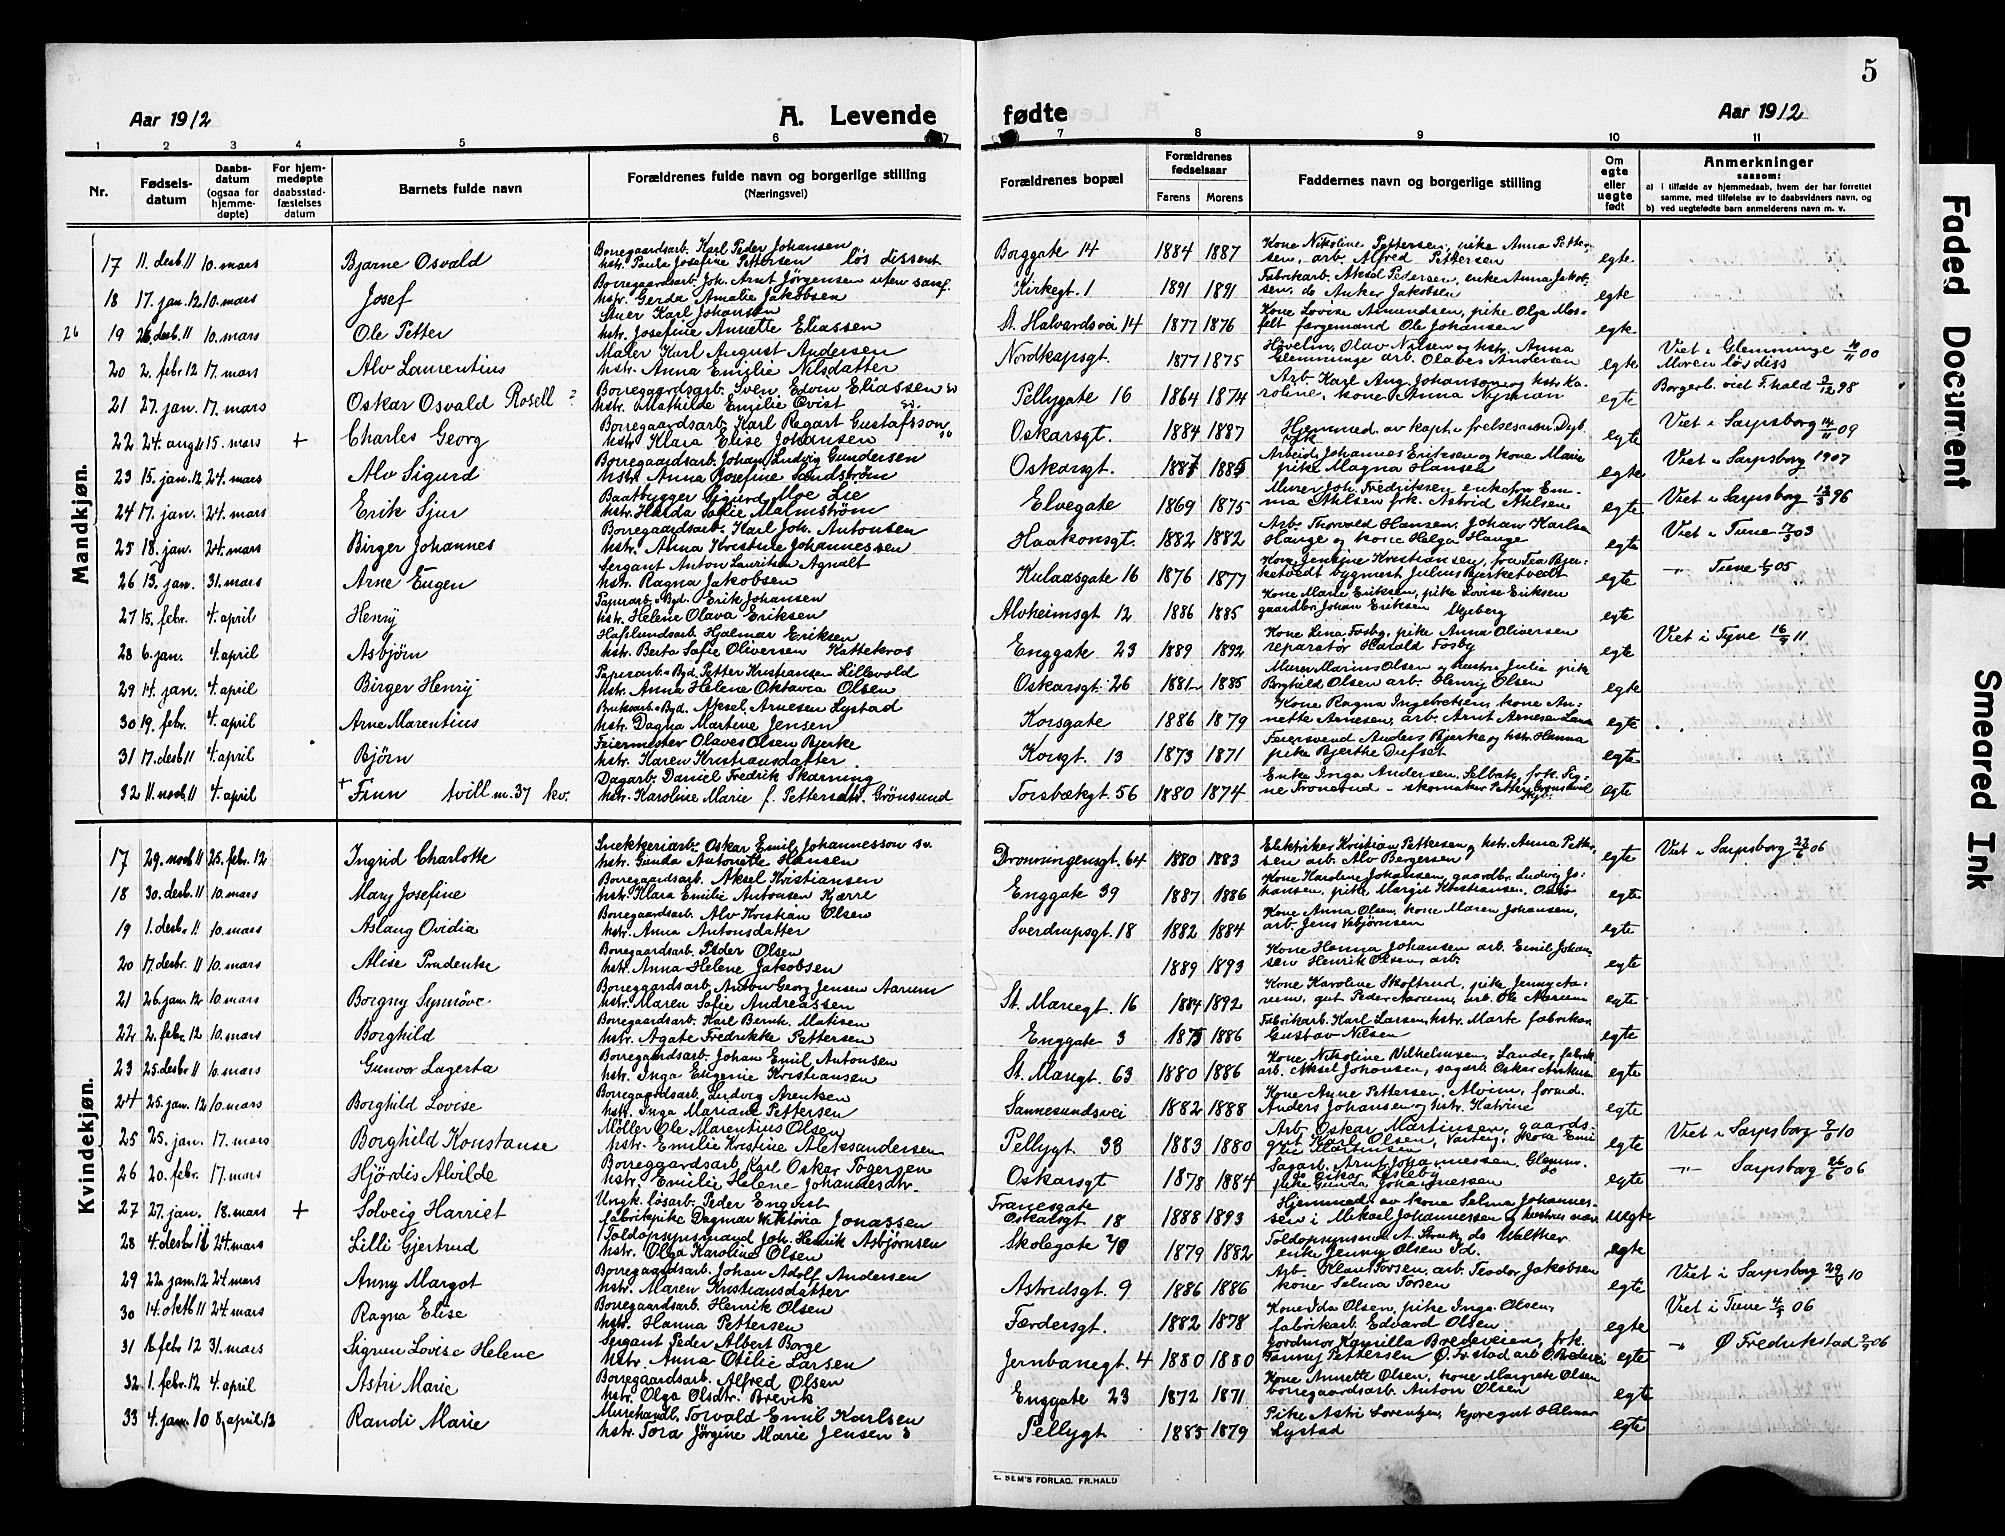 5
Aar 1912
A. Levende
fødte
Aar 1912
1 2 3 4 5 6 7 8 9 10 11
Nr.
Fødsels-
datum
Daabs-
datum
(ogsaa for
hjemme-
døpte)
For hjem-
medøpte
daabsstad-
fæstelses
datum
Barnets fulde navn
Forældrenes fulde navn og borgerlige stilling
(Næringsvei)
Forældrenes bopæl
Forældrenes
fødselsaar
Farens Morens
Faddernes navn og borgerlige stilling
Om
egte
eller
uegte
født
Anmerkninger
saasom:
a) i tilfælde av hjemmedaab, hvem der har forrettet
samme, med tilføielse av to daabsvidners navn, og
b) ved uegtefødte barn anmelderens navn m. v.
Mandkjøn.
17 11. desb 11 10. mars Bjarne Osvald Borregaardsarb. Karl Peder Johansen
hstr. Paula Josefine Pettersen løs dissent Borggate 14 1884 1887 Kone Nikoline Pettersen, pike Anna Petter-
sen, arb. Alfred Pettersen egte
18 17. jan. 12 10. mars Josef Borregaardsarb. Joh. Arnt Jörgensen uten samf.
hstr. Gerda Amalie Jakobsen Kirkegt. 1 1891 1891 Fabrikarb. Aksel Pedersen, enke Anna Jakob-
sen, do Anker Jakobsen egte
26 19 26. desb 11 10. mars Ole Petter Stuer Karl Johansen
hstr. Josefine Annette Eliassen St. Halvardsvei 14 1877 1876 Kone Lovise Asmundsen, pike Olga Mos-
felt færgemand Ole Johansen egte
20 2. febr 12 17. mars Alv Laurentius Maler Karl August Andersen
hstr. Anna Emilie Nilsdatter Nordkapsgt. 1877 1875 Høvelm. Olav Nilsen og hstr. Anna
Glemminge arb. Olaves Andersen egte Viet i Glemminge 00
Moren løs diss
21 27. jan. 17. mars Oskar Osvald Rosell ? Borregaardsarb. Sven Edvin Eliassen sv
hstr. Mathilde Emilie Qvist sv. Pellygate 16 1864 1874 Arb. Karl Aug. Johansson og hstr. Ka-
roline, kone Anna Nyman egte Borgerl. viet F.hald 3/12 98
22 24. aug 11 15. mars + Charles Georg Borregaardsarb. Karl Ragart Gustafsson
hstr. Klara Elise Johansen sv Oskarsgt. 1884 1887 Hjemmed. av kapt. i frelsesarmeen Dyb-
egte Viet i Sarpsborg 14/11 09
23 15. jan. 12 24. mars Alv Sigurd Borregaardsarb. Johan Ludvig Gundersen
hstr. Anna Josefine Sandstrøm Oskarsgt. 1887 1885 Arbeid. Johannes Eriksen og kone Marie
pike Magna Hansen egte Viet i Sarpsborg 1907
24 17. jan. 24. mars Erik Sjur Baatbygger Sigurd Moe Lie
hstr. Harda Sofie Malmstrøm Elvegate 1869 1875 Murer Joh. Fredriksen enkefru Em-
ma Nilsen frk. Astrid Nilsen egte Viet i Sarpsborg 13/3 96
25 18. jan. 24. mars Birger Johannes Borregaardsarb. Karl Joh. Antonsen
hstr. Anna Kristine Johannessen Haakonsgt. 1882 1882 Arb. Thorvald Hansen, Johan Karlsen
Hauge og kone Helga Hauge egte Viet i Tune 03
26 13. jan. 31. mars Arne Eugen Sergant Anton Lauritsen Agnalt
hstr. Ragna Jakobsen Kulaasgate 16 1876 1877 Kone Jenkine Kristiansen, fru Tea Bjer-
ketvedt bygmest Julius Bjerketvedt egte -"- Tune 05
27 15. febr. 4. april Henry Papirarb. Byd. Erik Johansen
hstr. Helene Olava Eriksen Alvheimsgt 12 1886 1885 Kone Marie Eriksen, pike Lovise Eriksen
gaardbr. Johan Eriksen Skjeberg egte
28 6. jan. 4. april Asbjørn Hafslundsarb. Hjalmar Eriksen
hstr. Berta Sofie Oliversen Kattekros Enggate 23 1889 1892 Kone Lina Fosby, pike Anna Oliversen
reparatør Harald Fosby egte Viet i Tyne 16/9 11
29 14. jan. 4. april Birger Henry Papirarb. Byd. Petter Kristiansen Lillevold
hstr. Anna Helene Oktavia Olsen Oskarsgt. 26 1881 1885 Murer Marius Olsen og hustru Julie pike
Borghild Olsen arb. Henry Olsen egte
30 19. febr. 4. april Arne Marentius Bruksarb. Byd. Aksel Arnesen Lystad
hstr. Dagna Martine Jensen Korsgate 1886 1879 Kone Ragna Ingebretsen, kone An-
nette Arnesen, arb. Arnt Arnesen Lande egte
31 17. desb 11 4. april Bjørn Feiermester Olaves Olsen Bjerke
hstr. Karen Kristiansdatter Korsgt. 13 1873 1871 Feiersvend Anders Bjerke og hstr. Hanna
pike Bjerthe Dufset egte
32 11. novb 11 4. april + Finn tvill m. 37 kv. Dagarb. Daniel Fredrik Skarning
hstr. Karoline Marie f. Pettersdtr. Grönsund Torsbækgt. 56 1880 1874 Enke Inga Andersen, Selbak, frk. Sig-
ne Tronerud - skomaker Petter Grönsund egte
Kvindekjøn.
17 29. novb 11 25. febr. 12 Ingrid Charlotte Snekkeriarb. Oskar Emil Johannesson sv.
hstr. Gunda Antonette Hansen Dronningensgt. 64 1880 1883 Elektriker Kristian Pettersen og hstr. Anna Petter-
sen arb. Alv Bergersen egte Viet i Sarpsborg 23/6 06
18 30. desb. 11 10. mars Mary Josefine Borregaardsarb. Aksel Kristiansen
hstr. Klara Emilie Antonsen Kjærre Enggate 39 1887 1886 Kone Karoline Johansen, gaardbr. Ludvig Jo-
hansen, pike Margit Kristiansen, Onsø egte
19 1. desb. 11 10. mars Aslaug Ovidia Borregaardsarb. Alv Kristian Olsen
hstr. Anna Antonsdatter Sverdrupsgt. 18 1882 1884 Kone Anna Olsen, kone Maren Johansen,
arb. Jens Vebjørnsen egte
20 17. desbr. 11 10. mars Alise Prudentse Borregaardsarb. Peder Olsen
hstr. Anna Helene Jakobsen 1889 1893 Kone Hanna Johansen arb. Emil Johan-
sen Henrik Olsen, arb. egte
21 26. jan. 12 10. mars Borgny Synnöve Borregaardsarb. Anton Georg Jensen Aarum
hstr. Maren Sofie Andreassen St. Mariegt. 16 1884 1892 Kone Karoline Skoftrud, pike Jenny Aa-
rum, gut Peder Aarum, arb. Ole Aarum egte
22 2. febr. 12 10. mars Borghild Borregaardsarb. Karl Bernh. Matisen
hstr. Agate Fredrikke Pettersen Enggate 3 1875 1886 Fabrikarb. Karl Larsen, hstr. Marte fabrikar.
Gustav Nilsen egte
23 25. desbr 11 10. mars Gunvor Lagerta Borregaardsarb. Johan Emil Antonsen
hstr. Inga Eugenie Kristiansen St. Marigt. 63 1880 1886 Kone Nikoline Vilhelmsen, Lande, fabrik
arb. Aksel Johansen, sagarb. Oskar Antonsen egte
24 25. jan. 12 10. mars Borghild Lovise Borregaardsarb. Ludvig Arentsen
hstr. Inga Mariane Pettersen Sannesundsvei 1882 1888 Kone Anne Pettersen, Alvim, forvd.
Anders Johansen og hstr. Katrine egte
25 25. jan. 17. mars Borghild Konstanse Møller Ole Marentius Olsen
hstr. Emilie Kristine Aleksandersen Pellygt. 33 1883 1880 Arb. Oskar Martinsen, gaards-
gut Karl Olsen, Varteig, kone Emi
lie Martinsen egte Viet i Sarpsborg 10
26 20. febr. 17. mars Hjördis Alvilde Borregaardsarb. Karl Oskar Torgersen
hstr. Emilie Helene Johannesdtr. Oskarsgt 1878 1884 Sagarb. Arnt Johannessen, Glemm.
pike Gunda Johannessen egte -"- Sarpsborg 26/6 06
27 27. jan. 18. mars + Solveig Harriet Ungk. løsarb. Peder Enqvist
fabrikpike Dagmar Viktoria Jonassen Franesgate
Oskarsgt 18 1888 1893 Hjemmed av kone Selma Johannes-
sen i Mikael Johannessen og hustrus nær. uegte
28 4. desbr 11 24. mars Lilli Gjertrud Toldopsynsmand Joh. Henrik Asbjørnsen
hstr. Olga Karoline Olsen Skolegate 40 1879 1882 Toldopsynsm. A. Struk, do Walther
enke Jenny Olsen Id. egte
29 22. jan. 12 24. mars Anny Margot Borregaardsarb. Johan Adolf Andersen
hstr. Maren Kristiansdatter Astridsgt. 9 1886 1886 Arb. Klaus Torsen, arb. Teodor Jakobsen
kone Selma Torsen egte Viet i Sarpsborg 10
30 14. oktb 11 24. mars Ragna Elise Borregaardsarb. Henrik Olsen
hstr. Hanna Pettersen Færdersgt. 1882 1878 Kone Ida Olsen, pike Inga Olsen,
fabrikarb. Edvard Olsen egte Viet i Tune 06
31 16 febr 12 31. mars Sigrun Lovise Helene Sergant Peder Albert Borge
hstr. Anna Otilie Larsen Jernbanegt. 4 1880 1880 Jordmor Kamilla Bredeveien, frk.
Fanny Pettersen Ø. Fr.stad arb O. Bredevei egte -"- Ø Fredrikstad 06
32 1. febr. 12 4. april Astri Marie Borregaardsarb. Alfred Olsen
hstr. Olga Olsdtr. Brevik Enggate 23 1872 1871 Kone Annette Olsen, kone Margrete Olsen
borregaardsarb. Anton Olsen egte
33 4. jan. 10 8. april 12 Randi Marie Murehandl. Torvald Emil Karlsen
hstr. Tora Jörgine Marie Jensen Pellygt 1885 1879 Pike Astri Lorentzen, kjøregut Hilmar
Lystad egte
E. SEM'S FORLAG. FR.HALD
Faded Document
Smeared Ink